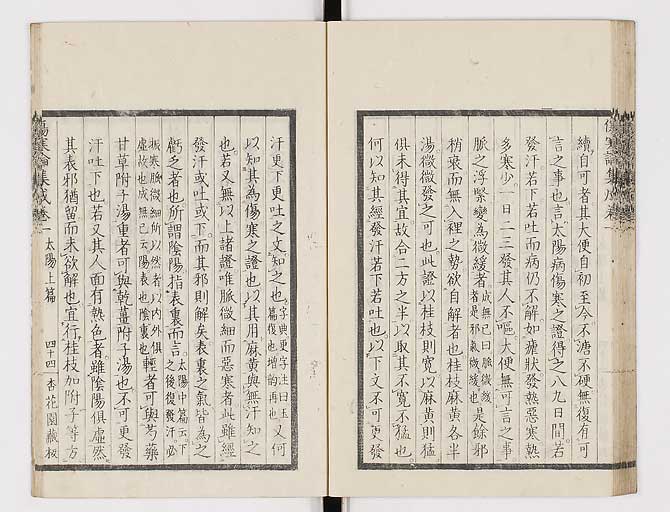 續自可者其大便自初至今不溏不硬無復有可
言之事也言太陽病傷寒之證得之八九日間若
發汗若下若吐而病仍不解如瘧狀發熱惡寒熱
多寒少一日二三發其人不嘔大便無可言之事
脈之浮緊變為微緩者成無已曰脈微緩者是邪氣微緩也是餘邪
稍衰而無入裡之勢欲自解者也桂枝麻黃各半
湯微微發之可也此證以桂枝則寬以麻黃則猛
俱未得其宜故合二方之半以取其不寬不猛也
何以知其經發汗若下若吐也以下文不可更發
汗更下更吐之文知之也字典更字注曰玉篇復也增韵再也又何
以知其為傷寒之證也以其用麻黃與無汗知之
也若又無以上諸證唯脈微細而惡寒者此雖經
發汗或吐或下而其邪則解矣表裏之氣皆為之
虧乏者也所謂陰陽指表裏而言太陽中篇云下之後復發汗必
振寒脈微細所以然者以內外俱虛故也成無已云陽表也陰裏也輕者可與芍藥
甘草附子湯重者可與乾薑附子湯也不可更發
汗吐下也若又其人面有熱色者雖陰陽俱虛然
其表邪猶留而未欲解也宜行桂枝加附子等方
傷寒論集成卷一 太陽上篇 四十四 杏花園藏板